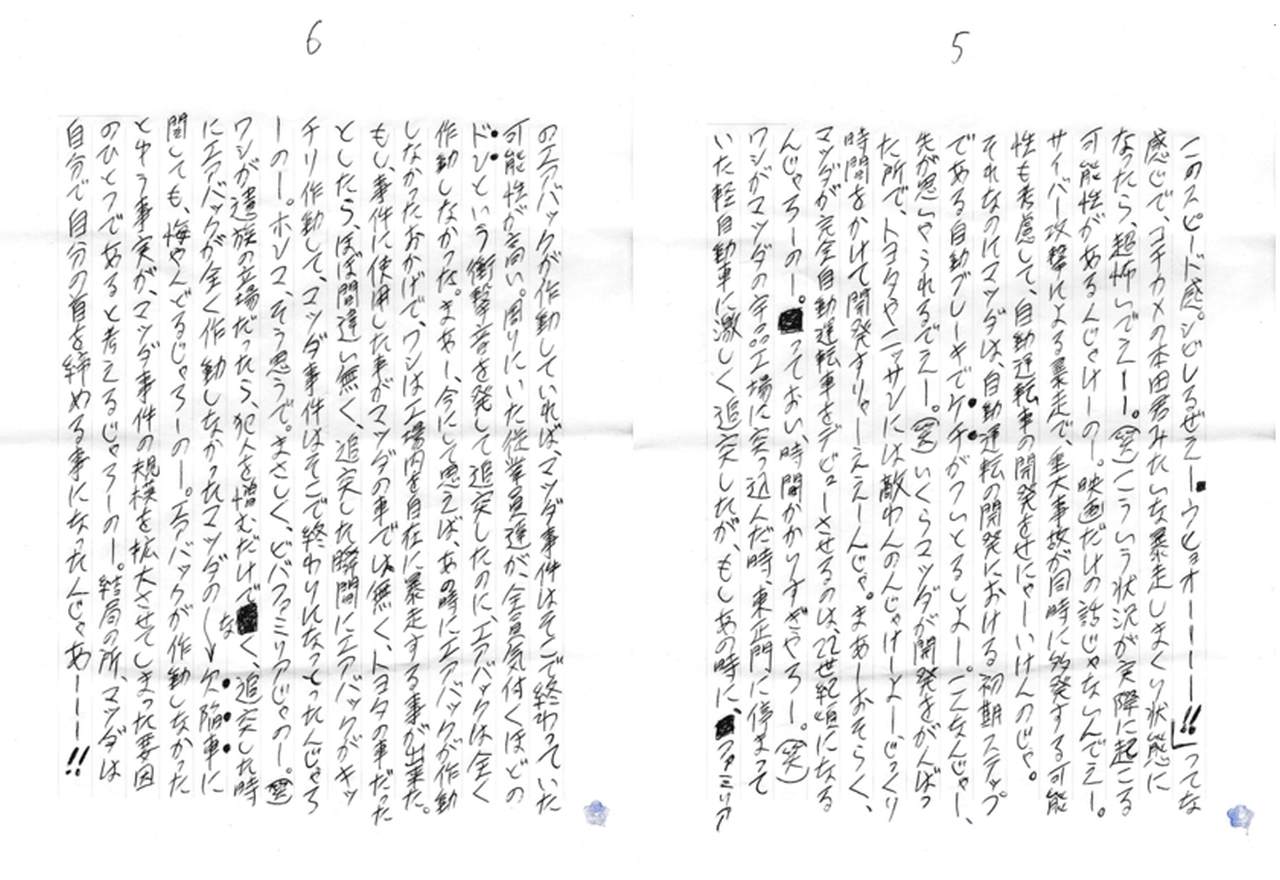 5
このスピード感。シビレるぜえー。ウヒョオーーーー!!」ってな
感じで、コチカメの本田君みたいな暴走しまくり状態に
なったら、超怖いでえーー。(笑)こういう状況が実際に起こる
可能性があるんじゃけーのー。映画だけの話じゃないんでえー。
サイバー攻撃による暴走で、重大事故が同時に多発する可能
性も考慮して、自動運転車の開発をせにゃーいけんのじゃ。
それなのにマツダは、自動運転の開発における初期ステップ
である自動ブレーキでケチがついとるしよー。こんなんじゃー、
先が思いやられるでえー。(笑)いくらマツダが開発をがんばっ
た所で、トヨタやニッサンには敵わんのんじゃけーよー、じっくり
時間をかけて開発すりゃーええーんじゃ。まあーおそらく、
マツダが完全自動運転車をデビューさせるのは、22世紀頃になる
んじゃろーのー。っておい、時間かかりすぎやろー。(笑)
ワシがマツダの宇品工場に突っ込んだ時、東正門に停まって
いた軽自動車に激しく追突したが、もしあの時に、ファミリア
6
のエアバックが作動していれば、マツダ事件はそこで終わっていた
可能性が高い。周りにいた従業員達が、全員気付くほどの
ドンという衝撃音を発して追突したのに、エアバックは全く
作動しなかった。まあー、今にして思えば、あの時にエアバックが作動
しなかったおかげで、ワシは工場内を自在に暴走する事が出来た。
もし、事件に使用した車がマツダの車では無く、トヨタの車だった
としたら、ほぼ間違い無く、追突した瞬間にエアバックがキッ
チリ作動して、マツダ事件はそこで終わりになっとったんじゃろ
ーのー。ホンマ、そう思うで。まさしく、ビバファミリアじゃのー。(笑)
ワシが遺族の立場だったら、犯人を憎むだけでなく、追突した時
にエアバックが全く作動しなかったマツダのー欠陥車に
関しても、悔やんどるじゃろーのー。エアバックが作動しなかった
とゆう事実が、マツダ事件の規模を拡大させてしまった要因
のひとつであると考えるじゃろーのー。結局の所、マツダは
自分で自分の首を締める事になったんじゃあーーー!!